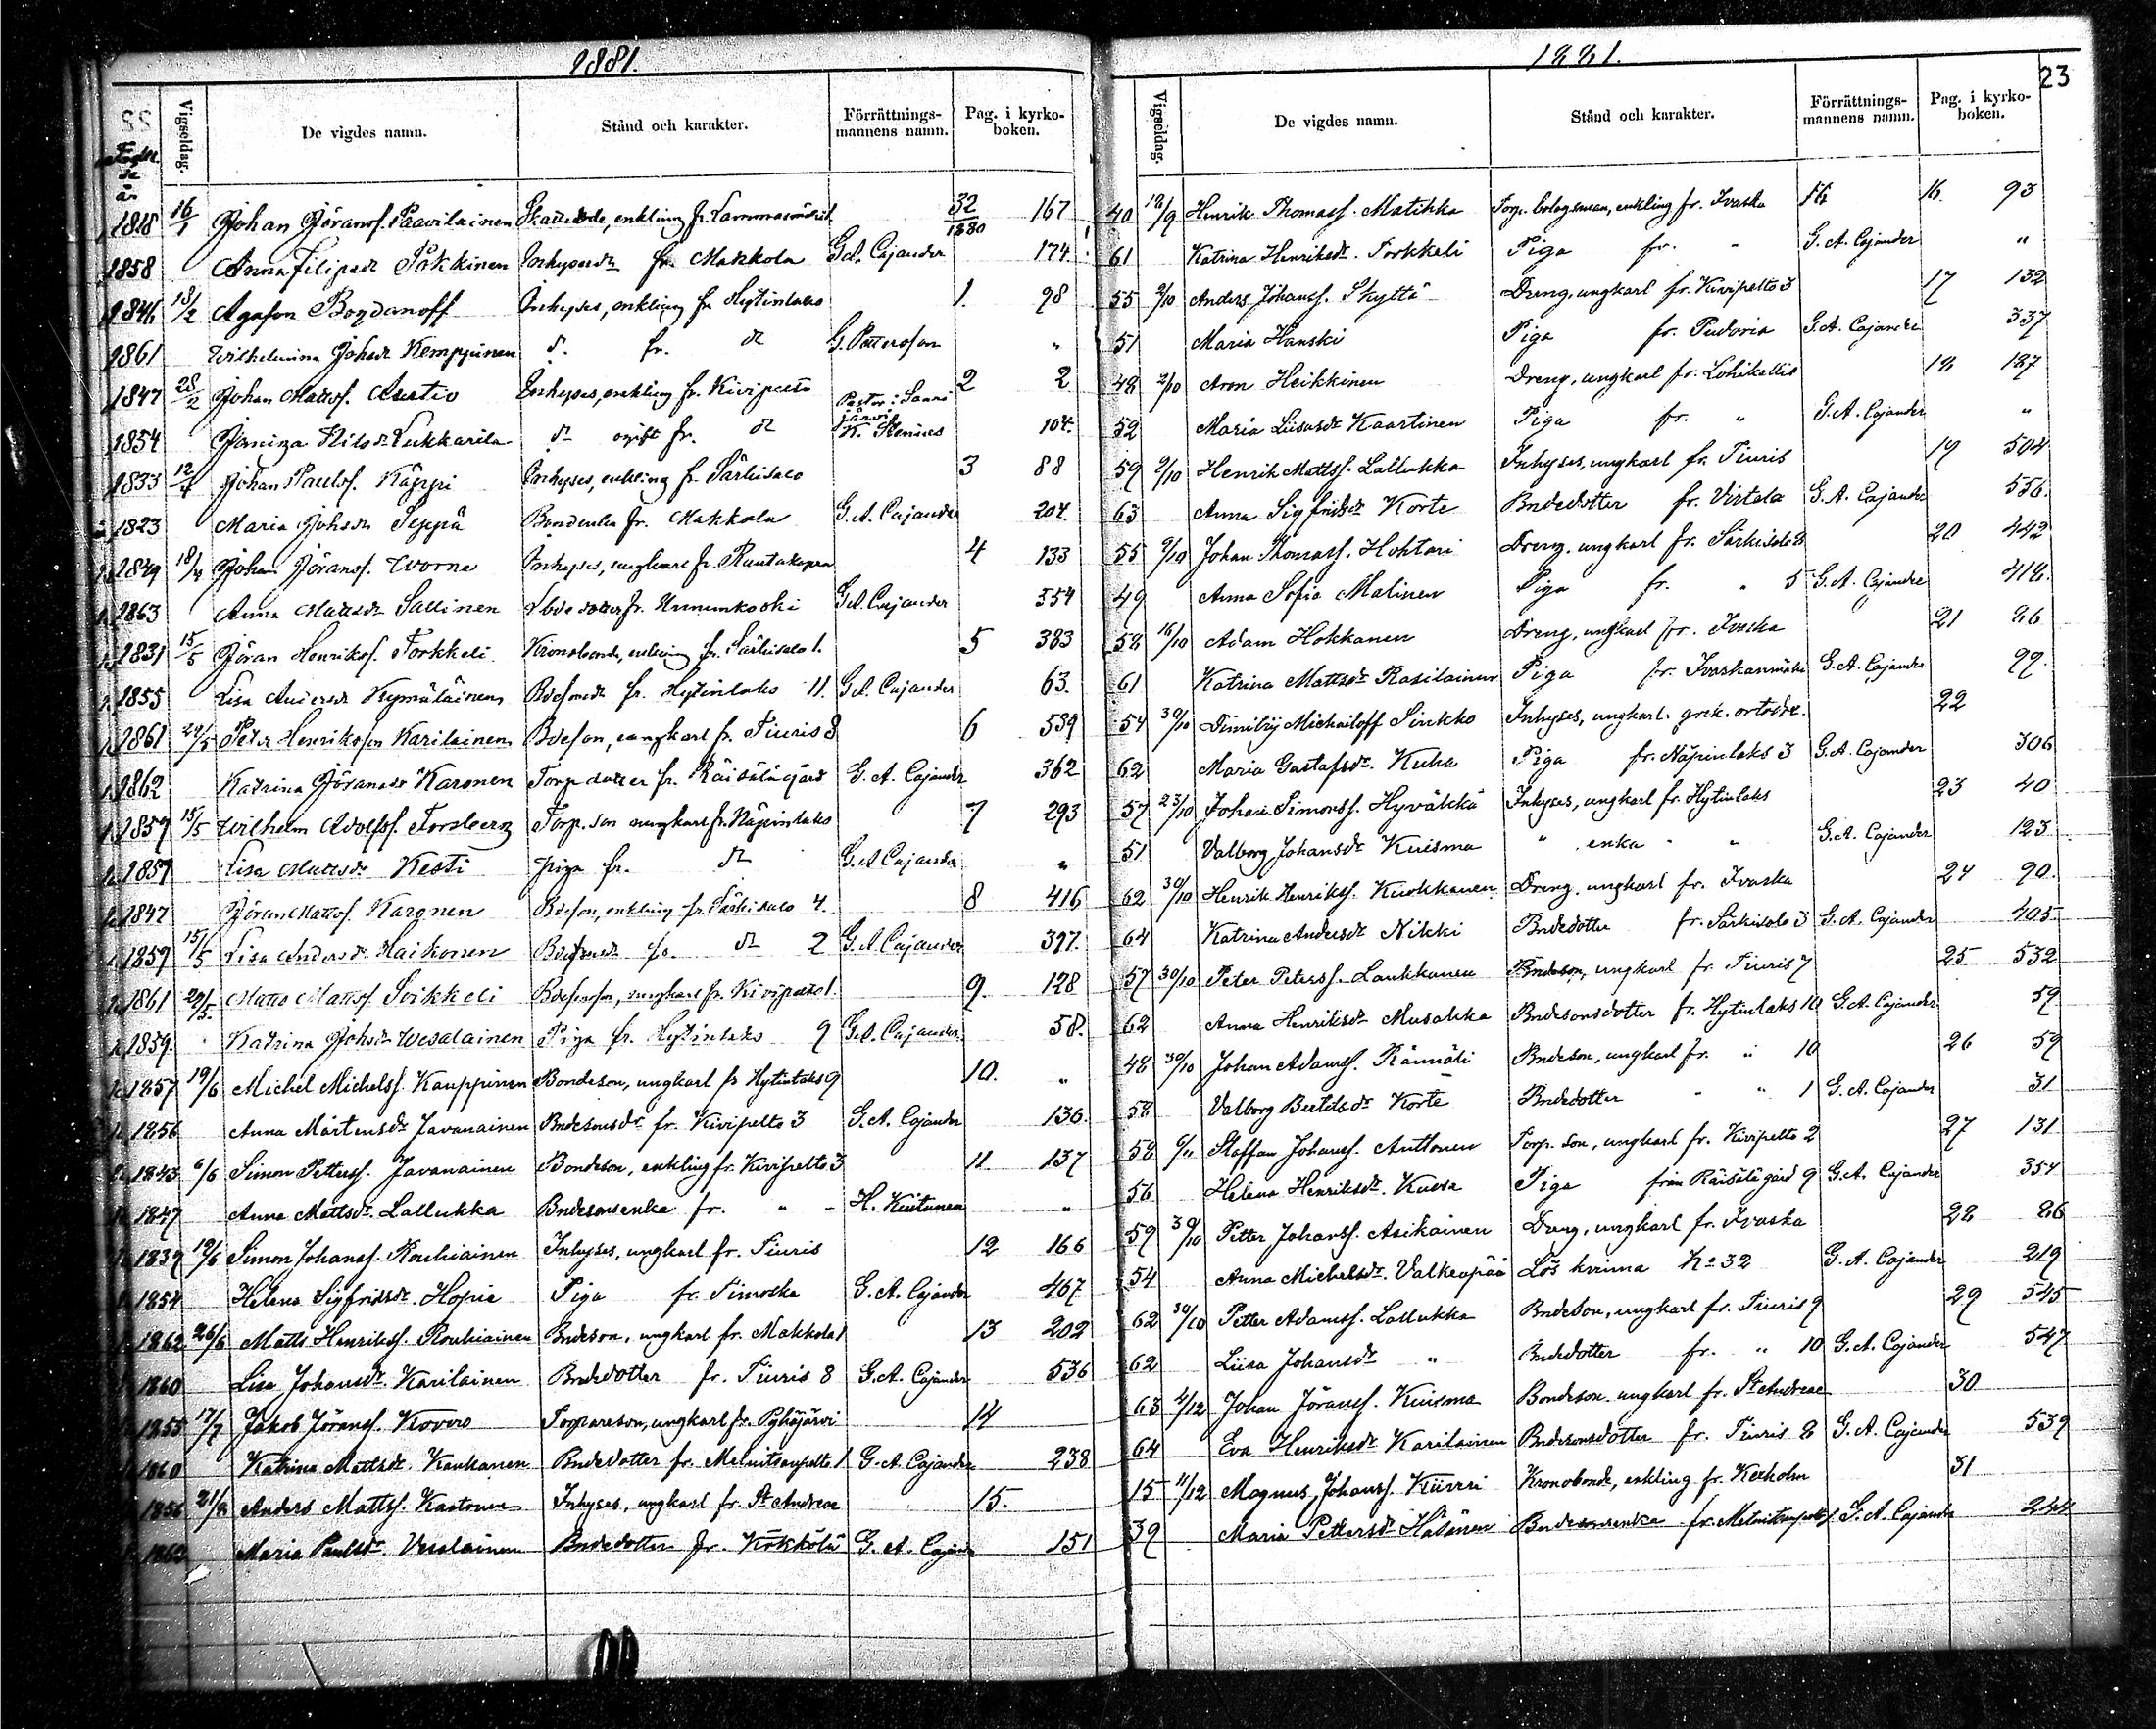 1881.
Födelse år
Vigseldag.
De vigdes namn.
Stånd och karakter.
Förrättnings-mannens namn.
Pag. i kyrko-boken.
1818 16/1 Johan Jöranss. Paavilainen enkling fr. 32/1880 167
1858 Anna Filipsdr Pakkinen Inhysesdr fr. Makkola G.A. Cajander 174
1846 13/2 Agafon Bogdanoff Inhyses, enkling fr. Hytinlaks 1. 98
1861 Wilhelmina Johsdr Kemppinen dr. fr. dr G. Pettersson "
1847 28/2 Johan Mattss. Inhyses, enkling fr. Kivipelto 2 2
1854 Nilsdr Lukkarila dr ogift fr. dr Pastor i Sannijärvi K. Stenius 104.
1833 12/4 Johan Paulss. Käppi Inhyses, enkling fr. Särkisalo 3 88
1823 Maria Johsdr Seppä Bondenka fr. Makkola G.A. Cajander 204.
1849 18/4 Johan Jöranss. Worne Inhyses, ungkarl fr. 4 133
1863 Anna Mattsdr Sallinen dotter fr. Unnunkoski G.A. Cajander 354
1831 15/5 Jöran Henrikss. Torkkeli Kronobonde, enkling fr. Särkisalo 1. 5 383
1855 Lisa Andersdr Hymäläinen fr. Hytinlaks 11. G.A. Cajander 63.
1861 22/5 Peter Henriksson Karilainen Bdeson, ungkarl fr. Tiuris 8 6 539
1862 Katrina Jöransdr Karonen Torp dotter fr. Räisälägård G.A. Cajander 362
1857 15/5 Wilhelm Adolfss. Forsberg Torp. son ungkarl fr. Näpinlaks 7 293
1859 Lisa Mattsdr Kesti piga fr. dr G.A. Cajander "
1847 Jöran Mattss. Karonen Bdeson, enkling fr. Särkisalo 4. 8 416
1859 15/5 Lisa Andersdr Haikonen fr. dr 2 G.A. Cajander 397.
1861 29/5 Matts Mattss. Svikkeli ungkarl fr. Kivipelto 1. 9. 128
1859. Katrina Johsdr Wesalainen Piga fr. Hytinlaks 9 G.A. Cajander 58.
1857 19/6 Michel Michelss. Kauppinen Bondeson, ungkarl fr Hytinlaks 9 10. "
1856 Anna Mårtensdr Javanainen Bndesonsdr fr. Kivipelto 3 G.A. Cajander 136.
1843 6/6 Simon Petterss. Javanainen Bondeson, enkling fr. Kivipelto 3 11. 137
1847 Anna Mattsdr. Lallukka Bndesonsenka fr. " - H. Kiutunen "
1839 19/6 Simon Johanss. Rouhiainen Inhyses, ungkarl fr. Tiuris 12 166
1854 Helena Sigfridsdr. Hopia Piga fr. Timoska G.A. Cajander 467
1862 26/6 Matts Henrikss. Rouhiainen Bndeson, ungkarl fr. Makkola 1 13 202
1860 Lisa Johansdr. Karilainen Bndedotter fr. Tiuris 8 G.A. Cajander 536
1855 17/7 Jakob Jöranss. Kovero Torpareson, ungkarl fr. Pyhäjärvi 14
1860 Katrina Mattsdr. Kaukanen Bndedotter fr. Melnitsanpelto 1 G.A. Cajander 238
1856 21/8 Anders Mattss. Kastonen Inhyses, ungkarl fr. St Andreae 15.
1862 Maria Paulsdr. Vesalainen Bndedotter fr. Kökkölä G.A. Cajander 151
1881.
23
Vigseldag.
De vigdes namn.
Stånd och karakter.
Förrättnings-mannens namn.
Pag. i kyrko-boken.
40 18/9 Henrik Thomass. Matikka Torp. bolagsman, enkling fr. Ivaska 16. 93
61 Katrina Henriksdr. Torkkeli Piga fr. " G.A. Cajander "
55 2/10 Anders Johanss. Skyttä Dreng, ungkarl fr. Kivipelto 3 17 132
51 Maria Hanski Piga fr. Pudoria G.A. Cajander 337
48 2/10 Aron Heikkinen Dreng, ungkarl fr. Lohikellis 18 187
52 Maria Liisasdr Kaartinen Piga fr. " G.A. Cajander "
59 9/10 Henrik Mattss. Lallukka Inhyses, ungkarl fr. Tiuris 19 504
63 Anna Sigfridsdr Korte Bndedotter fr. Virtala G.A. Cajander 556.
55 9/10 Johan Thomass. Hohtari Dreng. ungkarl fr. Särkisalo 8 20 442
49 Anna Sofia Malinen Piga fr. " 5 G.A. Cajander 418.
58 16/10 Adam Hokkanen Dreng, ungkarl fr. Ivaska 21 86
61 Katrina Mattsdr Rasilainen Piga fr. Ivaskanmäki G.A. Cajander 99.
54 30/10 Dimitrij Michailoff Sinkko Inhyses, ungkarl. grek. ortodox. 22
62 Maria Gustafsdr. Kuha Piga fr. Näpinlaks 3 G.A. Cajander 306
57 23/10 Johan Simonss. Hyväkkä Inhyses, ungkarl fr. Hytinlaks 23 40
51 Valborg Johansdr Kuisma " enka " " G.A. Cajander 123
62 30/10 Henrik Henrikss. Kiokkanen Dreng. ungkarl fr. Ivaska 24 90.
64 Katrina Andersdr Nikki Bndedotter fr. Särkisalo 3 G.A. Cajander 405
57 30/10 Peter Peterss. Laukkanen Bndeson, ungkarl fr Tiuris 7 25 532
62 Anna Henriksdr Musakka Bndesonsdotter fr. Hytinlaks 10 G.A. Cajander 59
48 30/10 Johan Adamss. Rämäti Bndeson, ungkarl fr. " 10 26 59
58 Valborg Bertilsdr Korte Bndedotter " " 1 G.A. Cajander 31
58 6/11 Staffan Johanss. Anttonen Torp. son, ungkarl fr. Kivipelto 2 27 131
56 Helena Henriksdr. Kuosa Piga från Räisälägård 9 G.A. Cajander 354
59 30/10 Petter Johanss. Asikainen Dreng, ungkarl fr. Ivaska 28 86
54 Anna Michelsdr. Valkeapää Lös kvinna No 32 G.A. Cajander 219
62 30/10 Petter Adamss. Lallukka Bndeson, ungkarl fr. Tiuris 9 29 545
62 Liisa Johansdr " Bndedotter fr. " 10 G.A. Cajander 547
63 4/12 Johan Jöranss. Kuisma Bondeson. ungkarl fr. St Andreae 30
64 Eva Henriksdr Karilainen Bndesonsdotter fr. Tiuris 8 G.A. Cajander 539
15 11/12 Magnus Johanss. Kiiveri Kronobonde, enkling fr. Kexholm 31
39 Maria Pettersdr Häkänen Bndesonsenka fr. Melnitsanpelto 1 G.A. Cajander 244